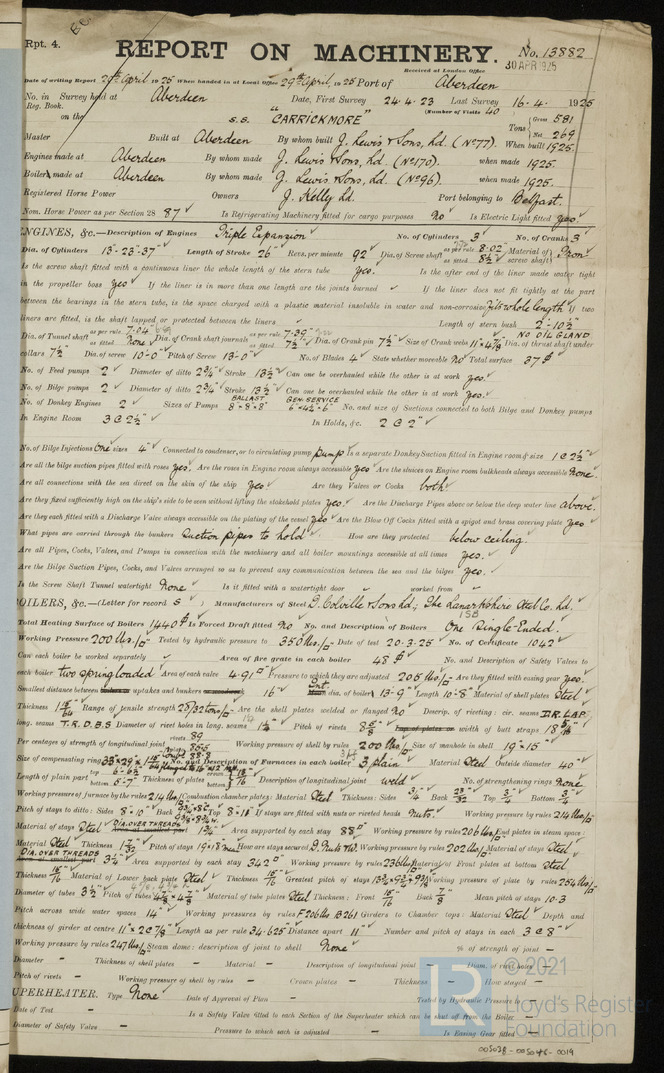 Rpt. 4.
REPORT ON MACHINERY.
No. 13882
Received at London Office
30 APR 1925
Date of writing Report 29th April 1925 When handed in at Local Office 29th April, 1925 Port of Aberdeen
No. in Survey held at Aberdeen Date, First Survey 24-4-23 Last Survey 16-4- 1925
Reg. Book. (Number of Visits 40
on the S.S. "CARRICKMORE" Tons Gross 581 Net 269
Master Built at Aberdeen By whom built J. Lewis & Sons, Ld. (No 77). When built 1925.
Engines made at Aberdeen By whom made J. Lewis & Sons, Ld. (No 170). when made 1925.
Boiler made at Aberdeen By whom made J. Lewis & Sons, Ld. (No 96). when made 1925.
Registered Horse Power Owners J. Kelly Ld. Port belonging to Belfast.
Nom. Horse Power as per Section 28 87 Is Refrigerating Machinery fitted for cargo purposes No Is Electric Light fitted yes.
ENGINES, &c.—Description of Engines Triple Expansion No. of Cylinders 3 No. of Cranks 3
Dia. of Cylinders 13"-23"-37" Length of Stroke 26" Revs. per minute 92 Dia. of Screw shaft as per rule 8.02 as fitted 8½" Material of screw shaft Iron
Is the screw shaft fitted with a continuous liner the whole length of the stern tube yes. Is the after end of the liner made water tight
in the propeller boss yes If the liner is in more than one length are the joints burned If the liner does not fit tightly at the part
between the bearings in the stern tube, is the space charged with a plastic material insoluble in water and non-corrosive fits whole length If two
liners are fitted, is the shaft lapped or protected between the liners Length of stern bush 2'-10½"
NO OIL GLAND
Dia. of Tunnel shaft as per rule 7.04 as fitted None Dia. of Crank shaft journals as per rule 7.39 as fitted 7½" Dia. of Crank pin 7½" Size of Crank webs 11"×4⅞" Dia. of thrust shaft under
collars 7½" Dia. of screw 10'-0" Pitch of Screw 13'-0" No. of Blades 4 State whether moveable No Total surface 37
No. of Feed pumps 2 Diameter of ditto 2¾" Stroke 13½" Can one be overhauled while the other is at work yes.
No. of Bilge pumps 2 Diameter of ditto 2¾" Stroke 13½" Can one be overhauled while the other is at work yes.
No. of Donkey Engines 2 Sizes of Pumps BALLAST 8"-8"×8" GEN. SERVICE 6"-4½"-6" No. and size of Suctions connected to both Bilge and Donkey pumps
In Engine Room 3 @ 2½" In Holds, &c. 2 @ 2"
No. of Bilge Injections One sizes 4" Connected to condenser, or to circulating pump pump Is a separate Donkey Suction fitted in Engine room & size 1 @ 2½"
Are all the bilge suction pipes fitted with roses yes. Are the roses in Engine room always accessible yes Are the sluices on Engine room bulkheads always accessible None
Are all connections with the sea direct on the skin of the ship yes Are they Valves or Cocks both
Are they fixed sufficiently high on the ship's side to be seen without lifting the stokehold plates yes. Are the Discharge Pipes above or below the deep water line above.
Are they each fitted with a Discharge Valve always accessible on the plating of the vessel yes Are the Blow Off Cocks fitted with a spigot and brass covering plate yes
What pipes are carried through the bunkers Suction pipes to hold How are they protected below ceiling.
Are all Pipes, Cocks, Valves, and Pumps in connection with the machinery and all boiler mountings accessible at all times yes.
Are the Bilge Suction Pipes, Cocks, and Valves arranged so as to prevent any communication between the sea and the bilges yes.
Is the Screw Shaft Tunnel watertight None Is it fitted with a watertight door worked from
BOILERS, &c.—(Letter for record S) Manufacturers of Steel D. Colville & Sons Ld; The Lanarkshire Steel Co. Ld.
Total Heating Surface of Boilers 1440 Is Forced Draft fitted No No. and Description of Boilers One Single-Ended.
Working Pressure 200 lbs/ Tested by hydraulic pressure to 350 lbs/ Date of test 20-3-25 No. of Certificate 1042
Can each boiler be worked separately Area of fire grate in each boiler 48 No. and Description of Safety Valves to
each boiler two spring loaded Area of each valve 4.91 Pressure to which they are adjusted 205 lbs/ Are they fitted with easing gear yes.
Smallest distance between uptakes and bunkers 16" Int. dia. of boiler 13'-9" Length 10'-8" Material of shell plates Steel
Range of tensile strength 28/32 tons/ Are the shell plates welded or flanged No Descrip. of riveting: cir. seams D.R. LAP.
long. seams T.R.D.B.S Diameter of rivet holes in long. seams Pitch of rivets of width of butt straps
Per centages of strength of longitudinal joint rivets 89 Working pressure of shell by rules 200 lbs/ Size of manhole in shell 19"×15"
Size of compensating ring No. and Description of Furnaces in each boiler 3 plain Material Steel Outside diameter 40"
Length of plain part top bottom Thickness of plates crown bottom Description of longitudinal joint weld No. of strengthening rings None
Working pressure of furnace by the rules 214 lbs/ Combustion chamber plates: Material Steel Thickness: Sides ¾" Back Top ¾" Bottom ¾"
Pitch of stays to ditto: Sides 8"×10" Back Top If stays are fitted with nuts or riveted heads Nuts. Working pressure by rules 214 lbs/
DIA. OVER THREADS
Material of stays Steel 1¾" Area supported by each stay 88 Working pressure by rules 206 lbs. End plates in steam space:
Material Steel Thickness Pitch of stays 19×18 How are stays secured D. Nuts &c. Working pressure by rules 202 lbs/ Material of stays Steel
DIA. OVER THREADS
3¼" Area supported by each stay 342 Working pressure by rules 236 lbs/ Material of Front plates at bottom Steel
Thickness 15/16 Material of Lower back plate Steel Thickness 15/16 Greatest pitch of stays Working pressure of plate by rules 254 lbs/
Diameter of tubes 3½" Pitch of tubes Material of tube plates Steel Thickness: Front 15/16 Back ⅞" Mean pitch of stays 10.3
Pitch across wide water spaces 14" Working pressures by rules F 206 lbs. B 261 Girders to Chamber tops: Material Steel Depth and
thickness of girder at centre 11"×2 @ ⅞" Length as per rule 34.625" Distance apart 11" Number and pitch of stays in each 3 @ 8"
Working pressure by rules 247 lbs/ Steam dome: description of joint to shell None % of strength of joint
Diameter Thickness of shell plates Material Description of longitudinal joint Diam. of rivet holes
Pitch of rivets Working pressure of shell by rules Crown plates Thickness How stayed
SUPERHEATER. Type None Date of Approval of Plan Tested by Hydraulic Pressure to
Date of Test Is a Safety Valve fitted to each Section of the Superheater which can be shut off from the Boiler
Diameter of Safety Valve Pressure to which each is adjusted Is Easing Gear fitted
© 2021
Lloyd's Register
Foundation
005038-005048-0019